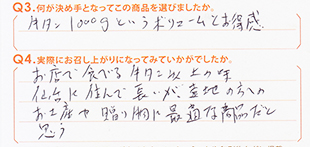 Q3.何が決め手となってこの商品を選びましたか。
牛タン1000gというボリュームとお得感
Q4.実際にお召し上がりになってみていかがでしたか。
お店で食べる牛タン以上の味
仙台に住んで長いが、当地の方への
お土産や贈り物に最適な商品だと
思う